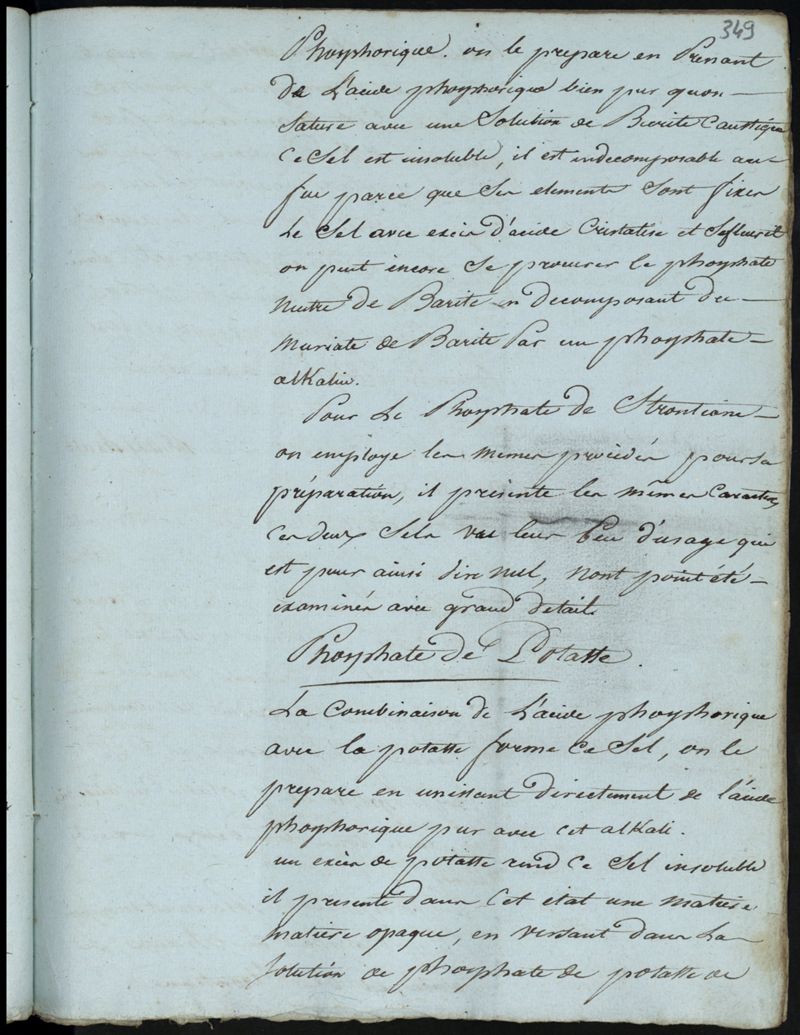 349
Phosphorique. on le prepare en Prenant
de L'acide phosphorique bien pur quon
sature avec une Solution de Barite Caustique
Ce Sel est insoluble, il est indecomposable au
feu parce que Ses elements Sont fixes
Le Sel avec excès d'acide Cristalise et Sefleurit
on peut encore Se procurer le phosphate
Nutre de Barite en decomposant du
Muriate de Barite Par un phosphate
alKalin.
Pour Le Phosphate de Strontiane
on employe les mêmes procédés pour sa
préparation, il présente les mêmes Caracteres
Ces deux Sels vue leur Peu d'usage qui
est pour ainsi dire nul, Nont point été
examinés avec grand detail.
Phosphate de Potasse.
La Combinaison de L'acide phosphorique
avec la potasse forme Ce Sel, on le
prepare en unissant directement de l'acide
phosphorique pur avec cet alKali.
un excès de potasse rend Ce Sel insoluble
il presente dans Cet etat une matiere
matiere opaque, en versant dans La
solution de phosphate de potasse de